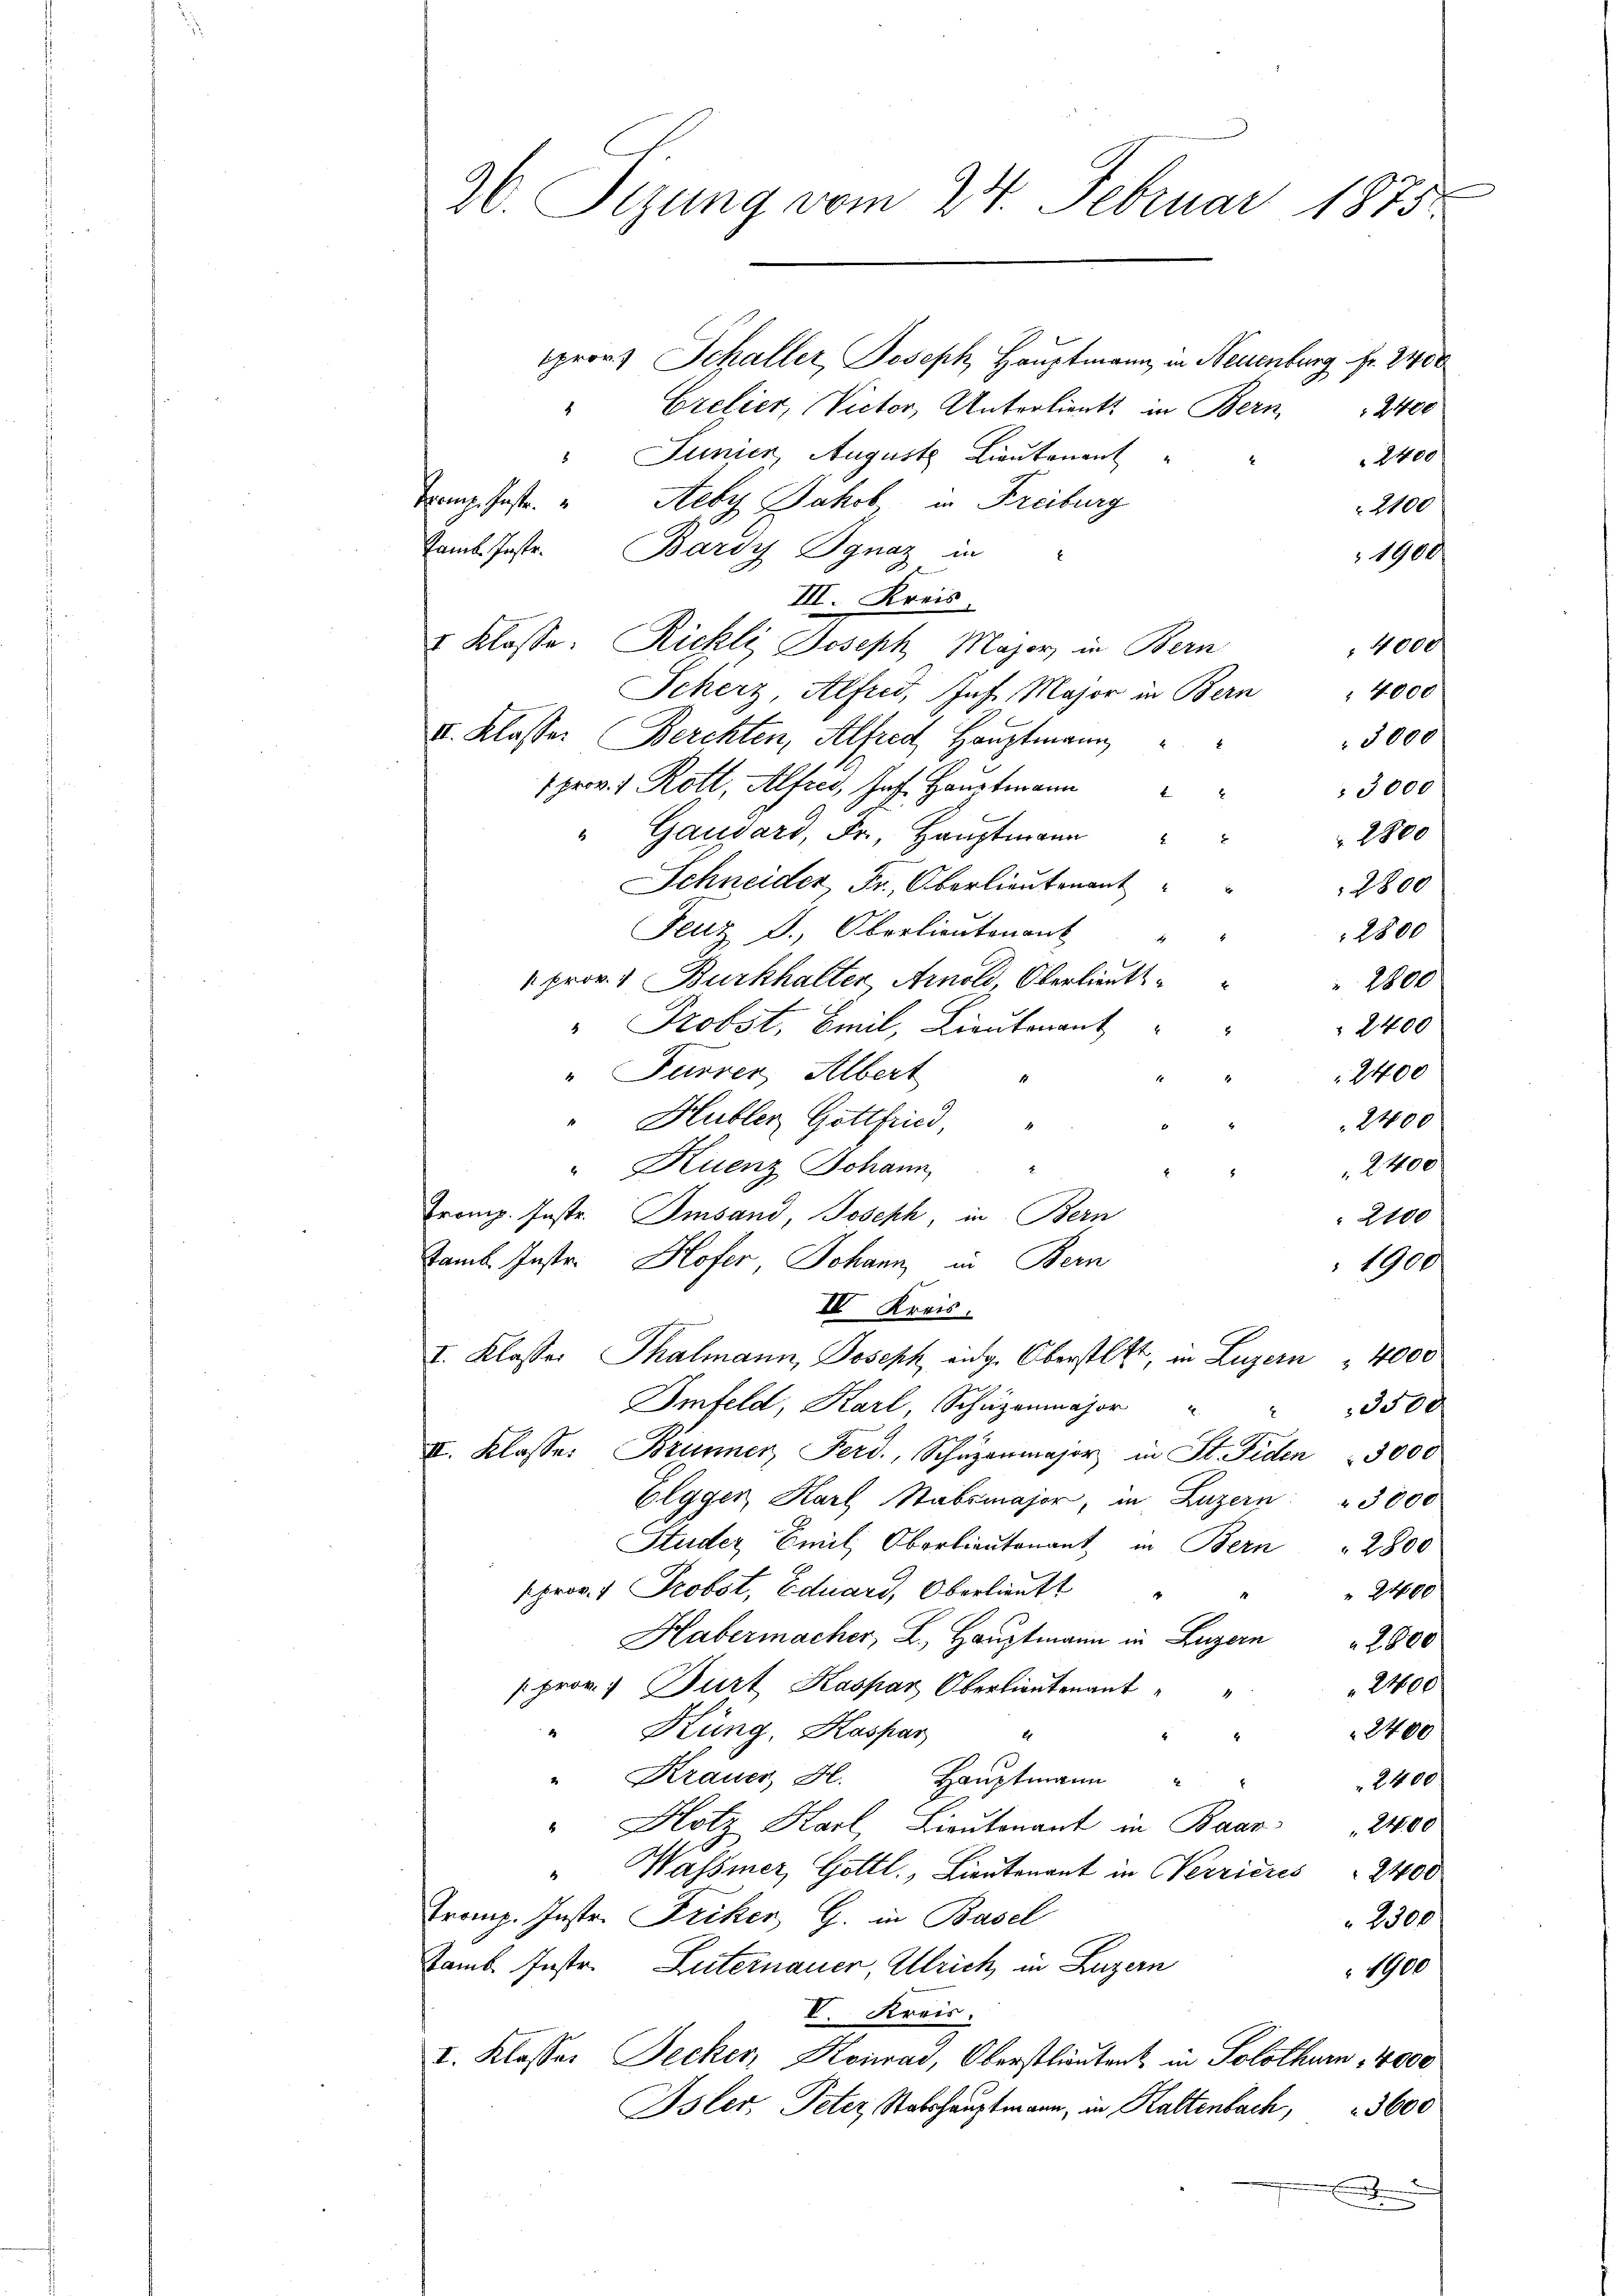 26. Sizung vom 24. Februar 1875.
(prov.) Schaller, Joseph, Hauptmann, in Neuenburg fr. 2400
" Crelier, Victor, Unterlieut. in Bern " 2400
" Junier, Auguste Lieutenant " " " 2400
Tromp. Instr. " Aeby Jakob, in Freiburg " 2100
Tamb. Instr. Bardy Ignaz in " " 1900
III. Kreis.
I Klasse. Rickli, Joseph, Major, in Bern " 4000
Scherz, Alfred, Inf. Major in Bern " 4000
II. Klasse: Berchten, Alfred, Hauptmann, " " " 3000
(prov.) Rott, Alfred, Inf. Hauptmann " " " 3000
" Gaudard, Fr., Hauptmann " " " 2800
Schneider, Fr., Oberlieutenant " " " 2800
Feuz, J., Oberlieutenant " " " 2800
(prov.) Burkhalter, Arnold, Oberlieut. " " " 2800
" Probst, Emil, Lieutenant " " " 2400
" Furrer, Albert " " " " 2400
" Hubler, Gottfried, " " " " 2400
" Kuenz Johann, " " " " 2400
Tromp. Instr. Imsand, Joseph, in Bern " 2100
Tamb. Instr. Hofer, Johann, in Bern " 1900
IV Kreis.
I. Klasse: Thalmann, Joseph, eidg. Oberstltt, in Luzern " 4000
Imfeld, Karl, Schüzenmajor " " " 3500
II. Klasse: Brunner, Ferd., Schüzenmajor, in St. Fiden " 3000
Elgger, Karl, Stabsmajor, in Luzern " 3000
Studer, Emil, Oberlieutenant, in Bern " 2800
(prov.) Probst, Eduard, Oberlieutt " " " 2400
Habermacher, L., Hauptmann in Luzern " 2800
(prov.) Burt, Kaspar, Oberlieutenant " " " 2400
" Küng, Kaspar, " " " " 2400
" Krauer, H. Hauptmann " " " 2400
" Hotz Karl, Lieutenant in Baar " 2400
" Wassmer, Gottl., Lieutenant in Verrières " 2400
Tromp. Instr. Friker, G. in Basel " 2300
Tamb. Instr. Luternauer, Ulrich, in Luzern " 1900
V. Kreis.
I. Klasse: Jecker, Konrad, Oberstlieutent. in Solothurn " 4000
Isler, Peter, Stabshauptmann, in Kaltenbach, " 3600